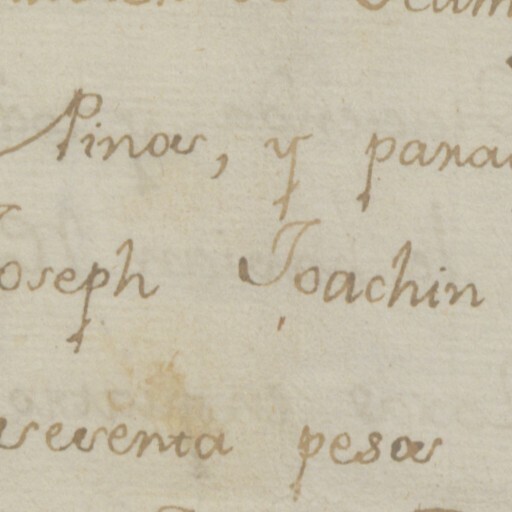 Pinos, y para
Joseph Joachin
sesenta pesos